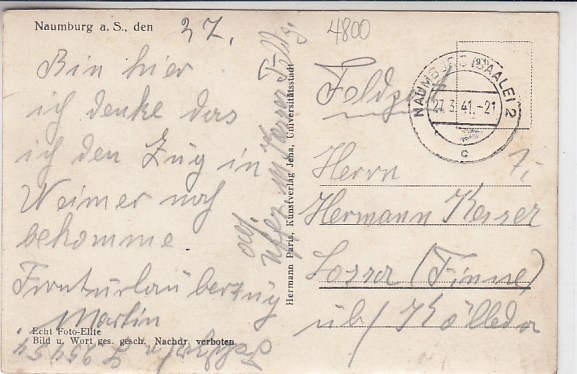 Naumburg a. S., den 27.
4800
Bin hier
ich denke das
ich den Zug in
Weimer noch
bekomme
Fronturlauberzug
Martin
Echt Foto-Elite
Bild u. Wort ges. gesch. Nachdr. verboten
Hermann Paris, Kunstverlag Jena, Universitätsstadt
Feldpost
NAUMBURG (SAALE) 2
27.3.41.-21
c
Herrn
Hermann Kesser
Lossa (Finne)
üb/ Kölleda